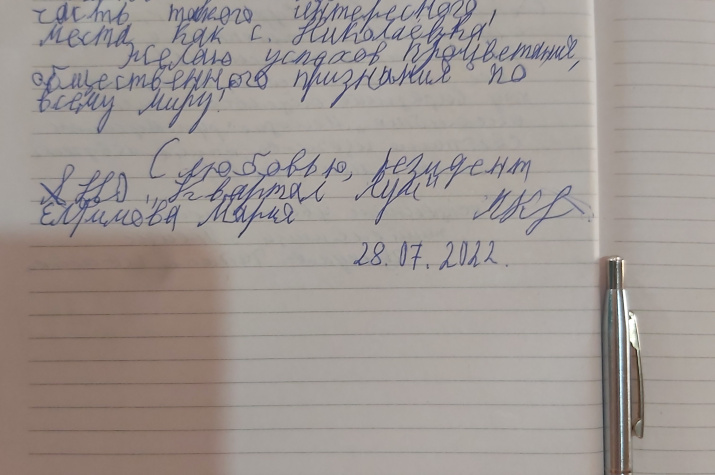 часть такого интересного,
места как с. Николаевка
Желаю успехов процветания,
общественного признания по
всему миру!
С любовью, резидент
"Квартал Луи"
Мария
28.07.2022.